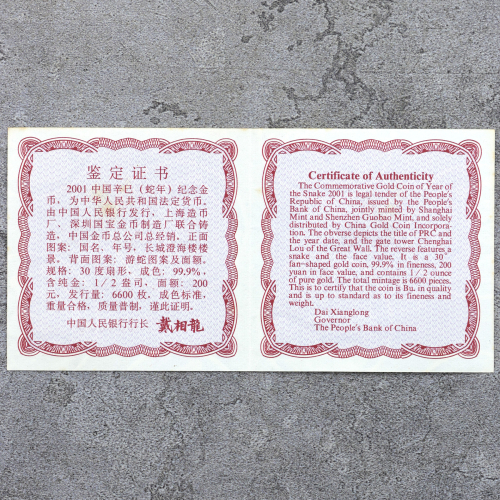 鉴定证书
2001 中国辛巳（蛇年）纪念金
币，为中华人民共和国法定货币。
由中国人民银行发行，上海造币
厂、深圳国宝金币制造厂联合铸
造，中国金币总公司总经销，正面
图案：国名、年号、长城澄海楼楼
景，背面图案：游蛇图案及面额。
规格：30 度扇形，成色：99.9%，
含纯金：1/2 盎司，面额：200
元，发行量：6600 枚，成色标准，
重量合格，质量普制，谨此证明。
中国人民银行行长 戴相龍
Certificate of Authenticity
The Commemorative Gold Coin of Year of
the Snake 2001 is legal tender of the People's
Republic of China, issued by the People's
Bank of China, jointly minted by Shanghai
Mint and Shenzhen Guobao Mint, and solely
distributed by China Gold Coin Incorpora-
tion. The obverse depicts the title of PRC and
the year date, and the gate tower Chenghai
Lou of the Great Wall. The reverse features a
snake and the face value. It is a 30°
fan-shaped gold coin, 99.9% in fineness, 200
yuan in face value, and contains 1/2 ounce
of pure gold. The total mintage is 6600 pieces.
This is to certify that the coin is Bu. in quality
and is up to standard as to its fineness and
weight.
Dai Xianglong
Governor
The People's Bank of China